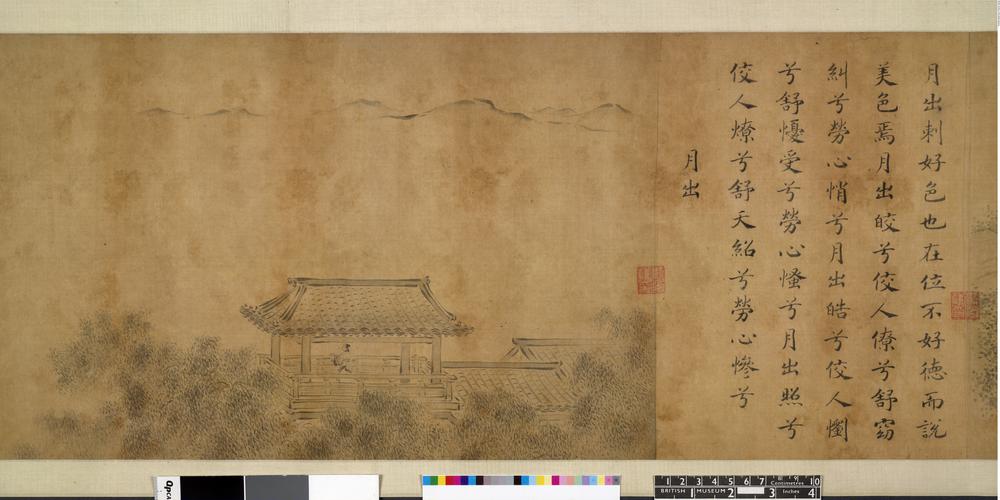 月出刺好色也在位不好德而說
美色焉月出皎兮佼人僚兮舒窈
糾兮勞心悄兮月出皓兮佼人懰
兮舒懮受兮勞心慅兮月出照兮
佼人燎兮舒夭紹兮勞心慘兮
月出
BRITISH MUSEUM
1 2 3 4 5 6 7 8 9 10
Centimetres
2 3 4
Inches